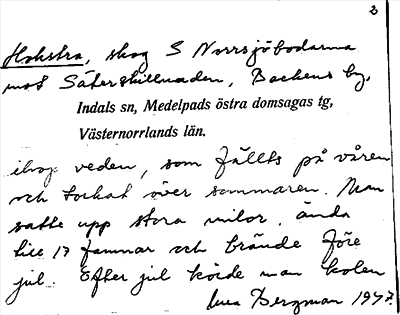 2
Hokstra, skog S Norrsjöbodarna
mot Säterskillnaden, Backens by.
Indals sn, Medelpads östra domsagas tg,
Västernorrlands län.
ihop veden, som fällts på våren
och torkat över sommaren. Man
satte upp stora milor, ända
till 17 famnar och brände före
jul. Efter jul körde man kolen
Bergman 1947.